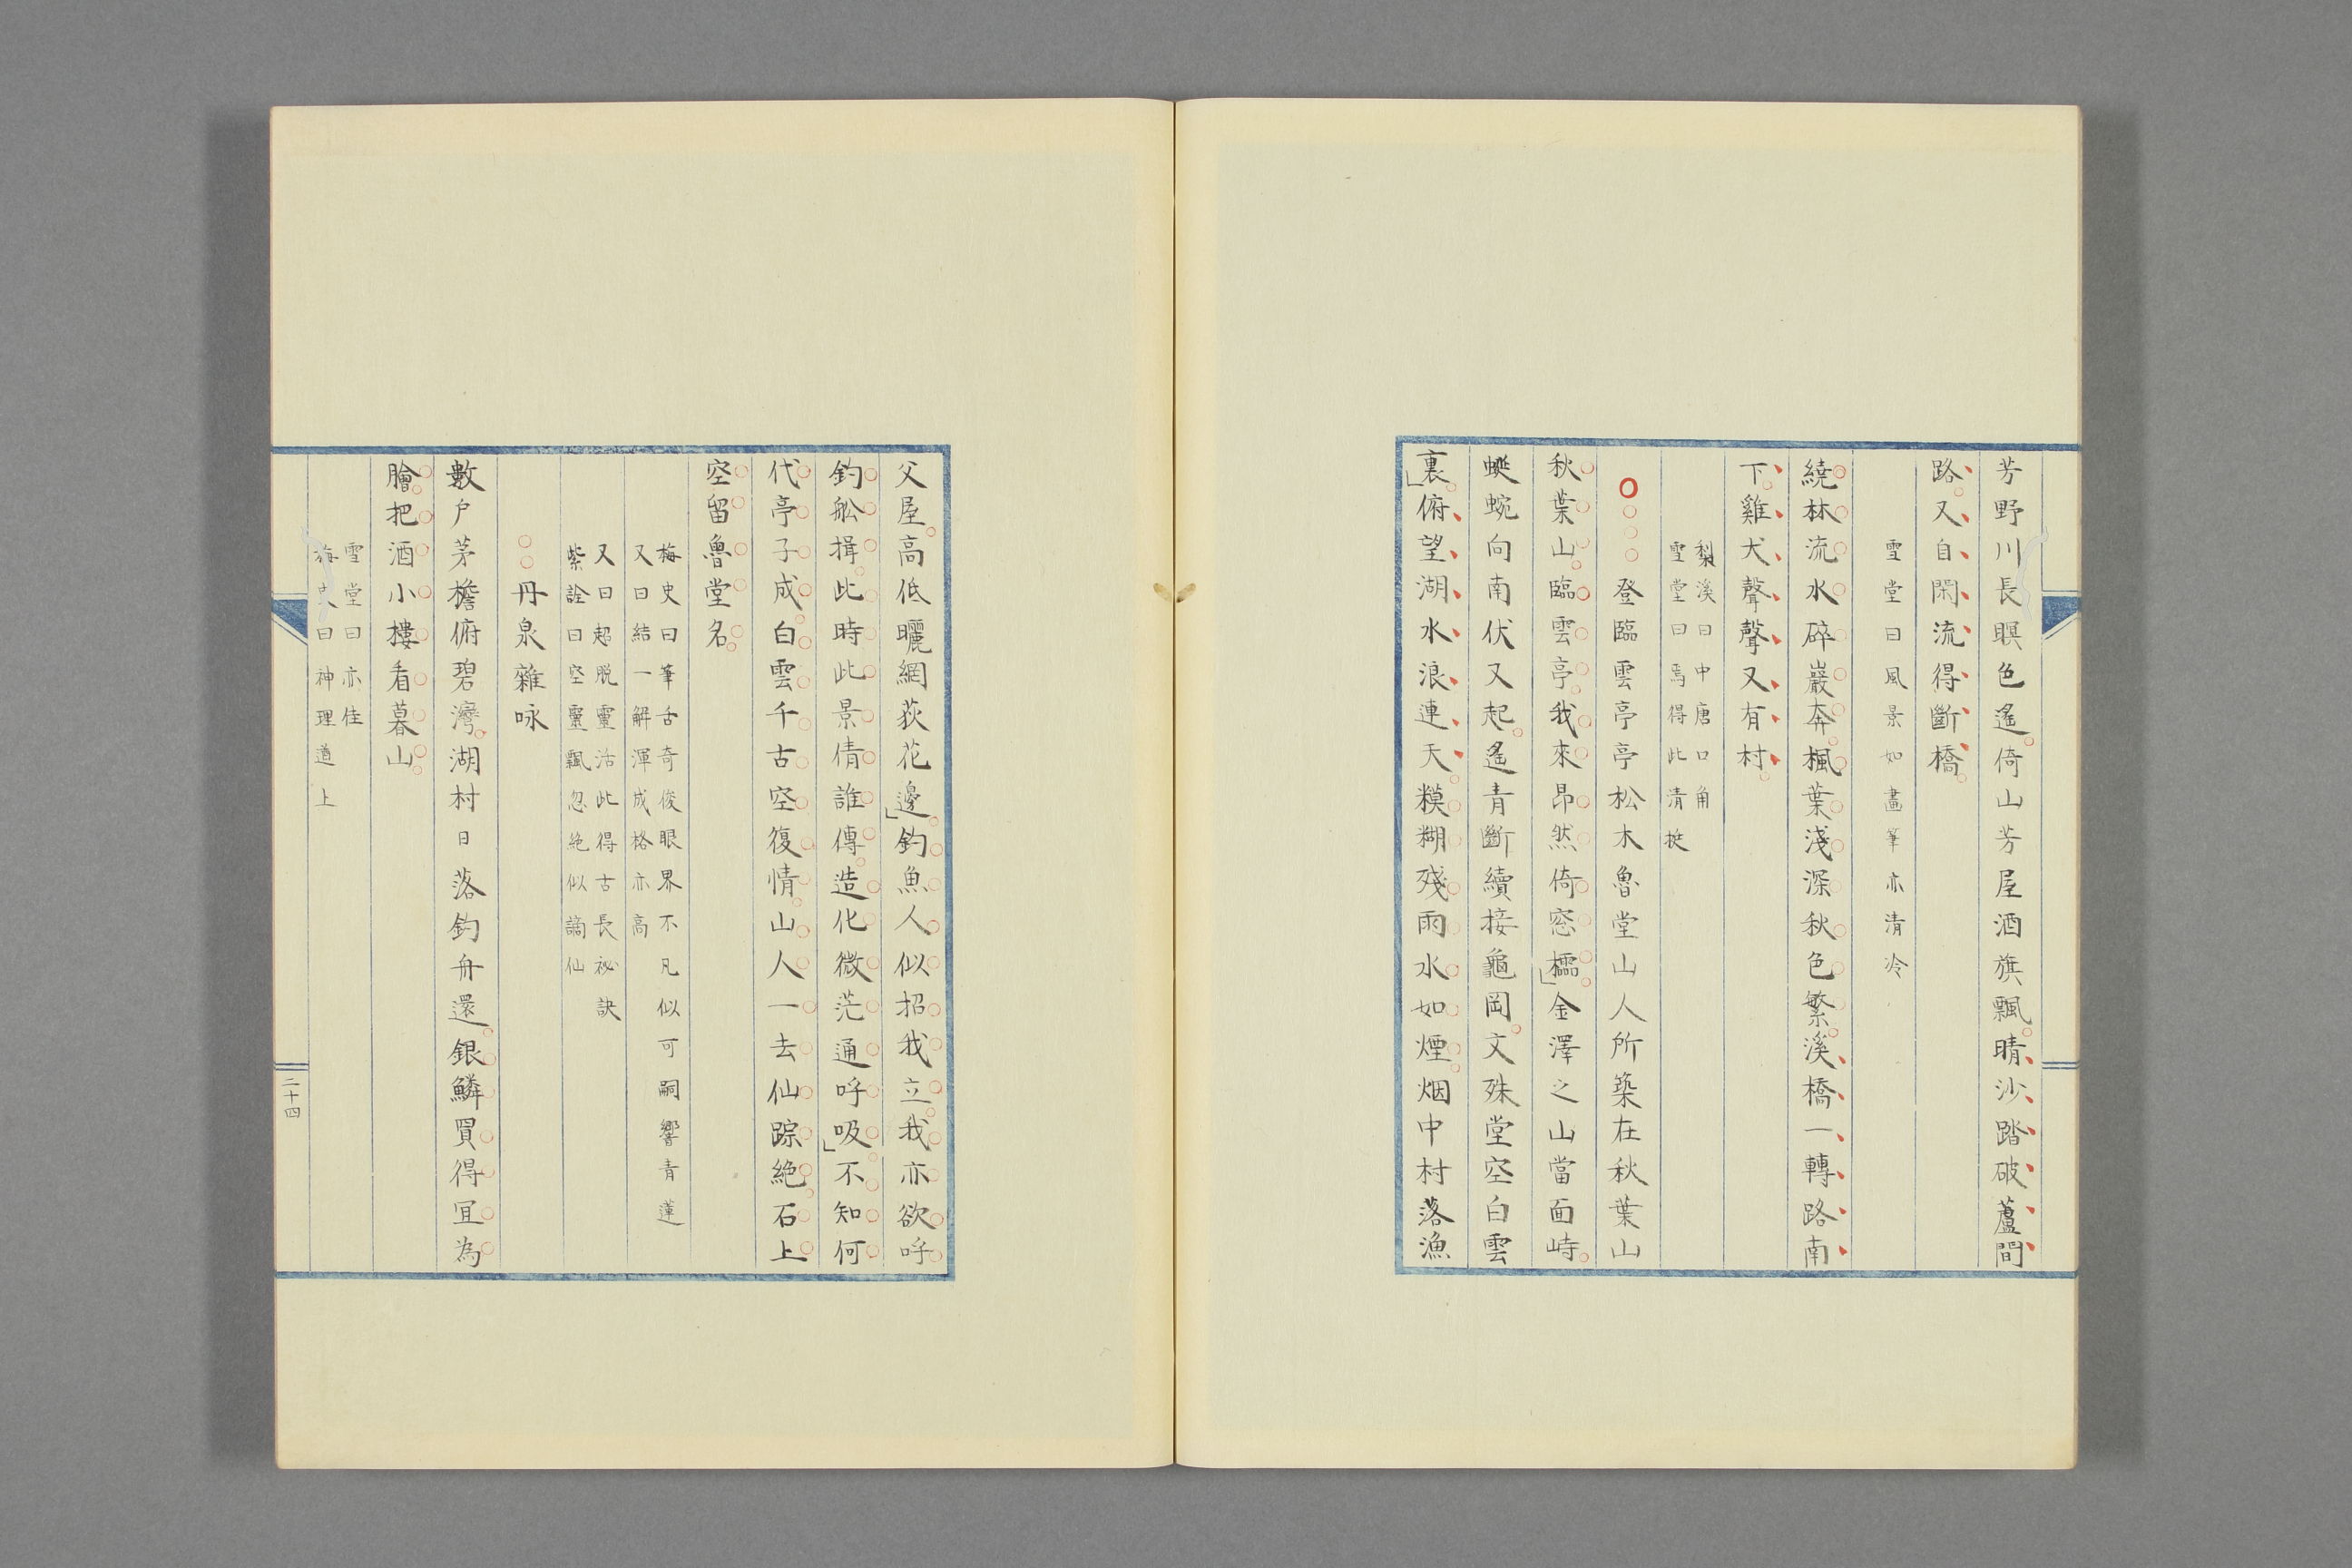 芳野川長暝色遙倚山芳屋酒旗飄晴沙踏破蘆間
路又自閑流得斷橋
雪堂曰風景如畫筆亦清冷
繞林流水碎巖奔楓葉淺深秋色繁溪橋一轉路南
下雞犬聲聲又有村
梨溪曰中唐口角
雪堂曰焉得此清挺
登臨雲亭亭松木魯堂山人所築在秋葉山
秋葉山臨雲亭我來昂然倚窓櫺」金澤之山當面峙
蜒蜿向南伏又起遙青斷續接龜岡文殊堂空白雲
裏」俯望湖水浪連天糢糊殘雨水如煙烟中村落漁
父屋高低曬網荻花邊」釣魚人似招我立我亦欲呼
釣船揖此時此景倩誰傳造化微茫通呼吸」不知何
代亭子成白雲千古空復情山人一去仙踪絶石上
空留魯堂名
梅史曰筆舌奇俊眼界不凡似可嗣響青蓮
又曰結一解渾成格亦高
又曰超脱靈活此得古長祕訣
紫詮曰空靈飄忽絶似謫仙
丹泉雜咏
數户茅檐俯碧灣湖村日落釣舟還銀鱗買得宜為
膾把酒小樓看暮山
雪堂曰亦佳
梅史曰神理遒上
二十四